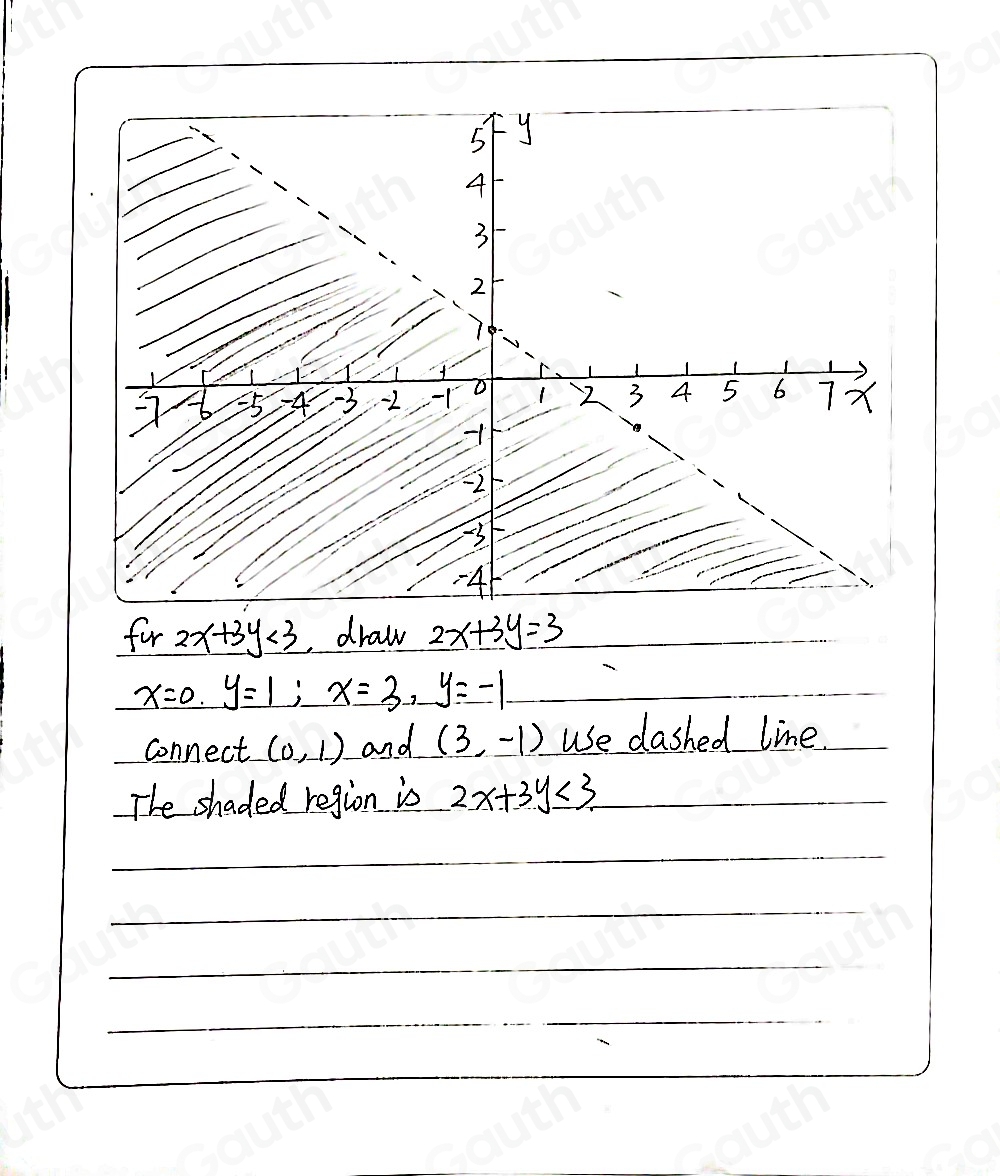 5 y
4
3
2
1
-7 -6 -5 -4 -3 -2 -1 0 1 2 3 4 5 6 7 x
-1
-2
-3
-4
for 2x+3y<3, draw 2x+3y=3
x=0. y=1; x=3, y=-1
connect (0,1) and (3,-1) use dashed line.
The shaded region is 2x+3y<3.
Gauth